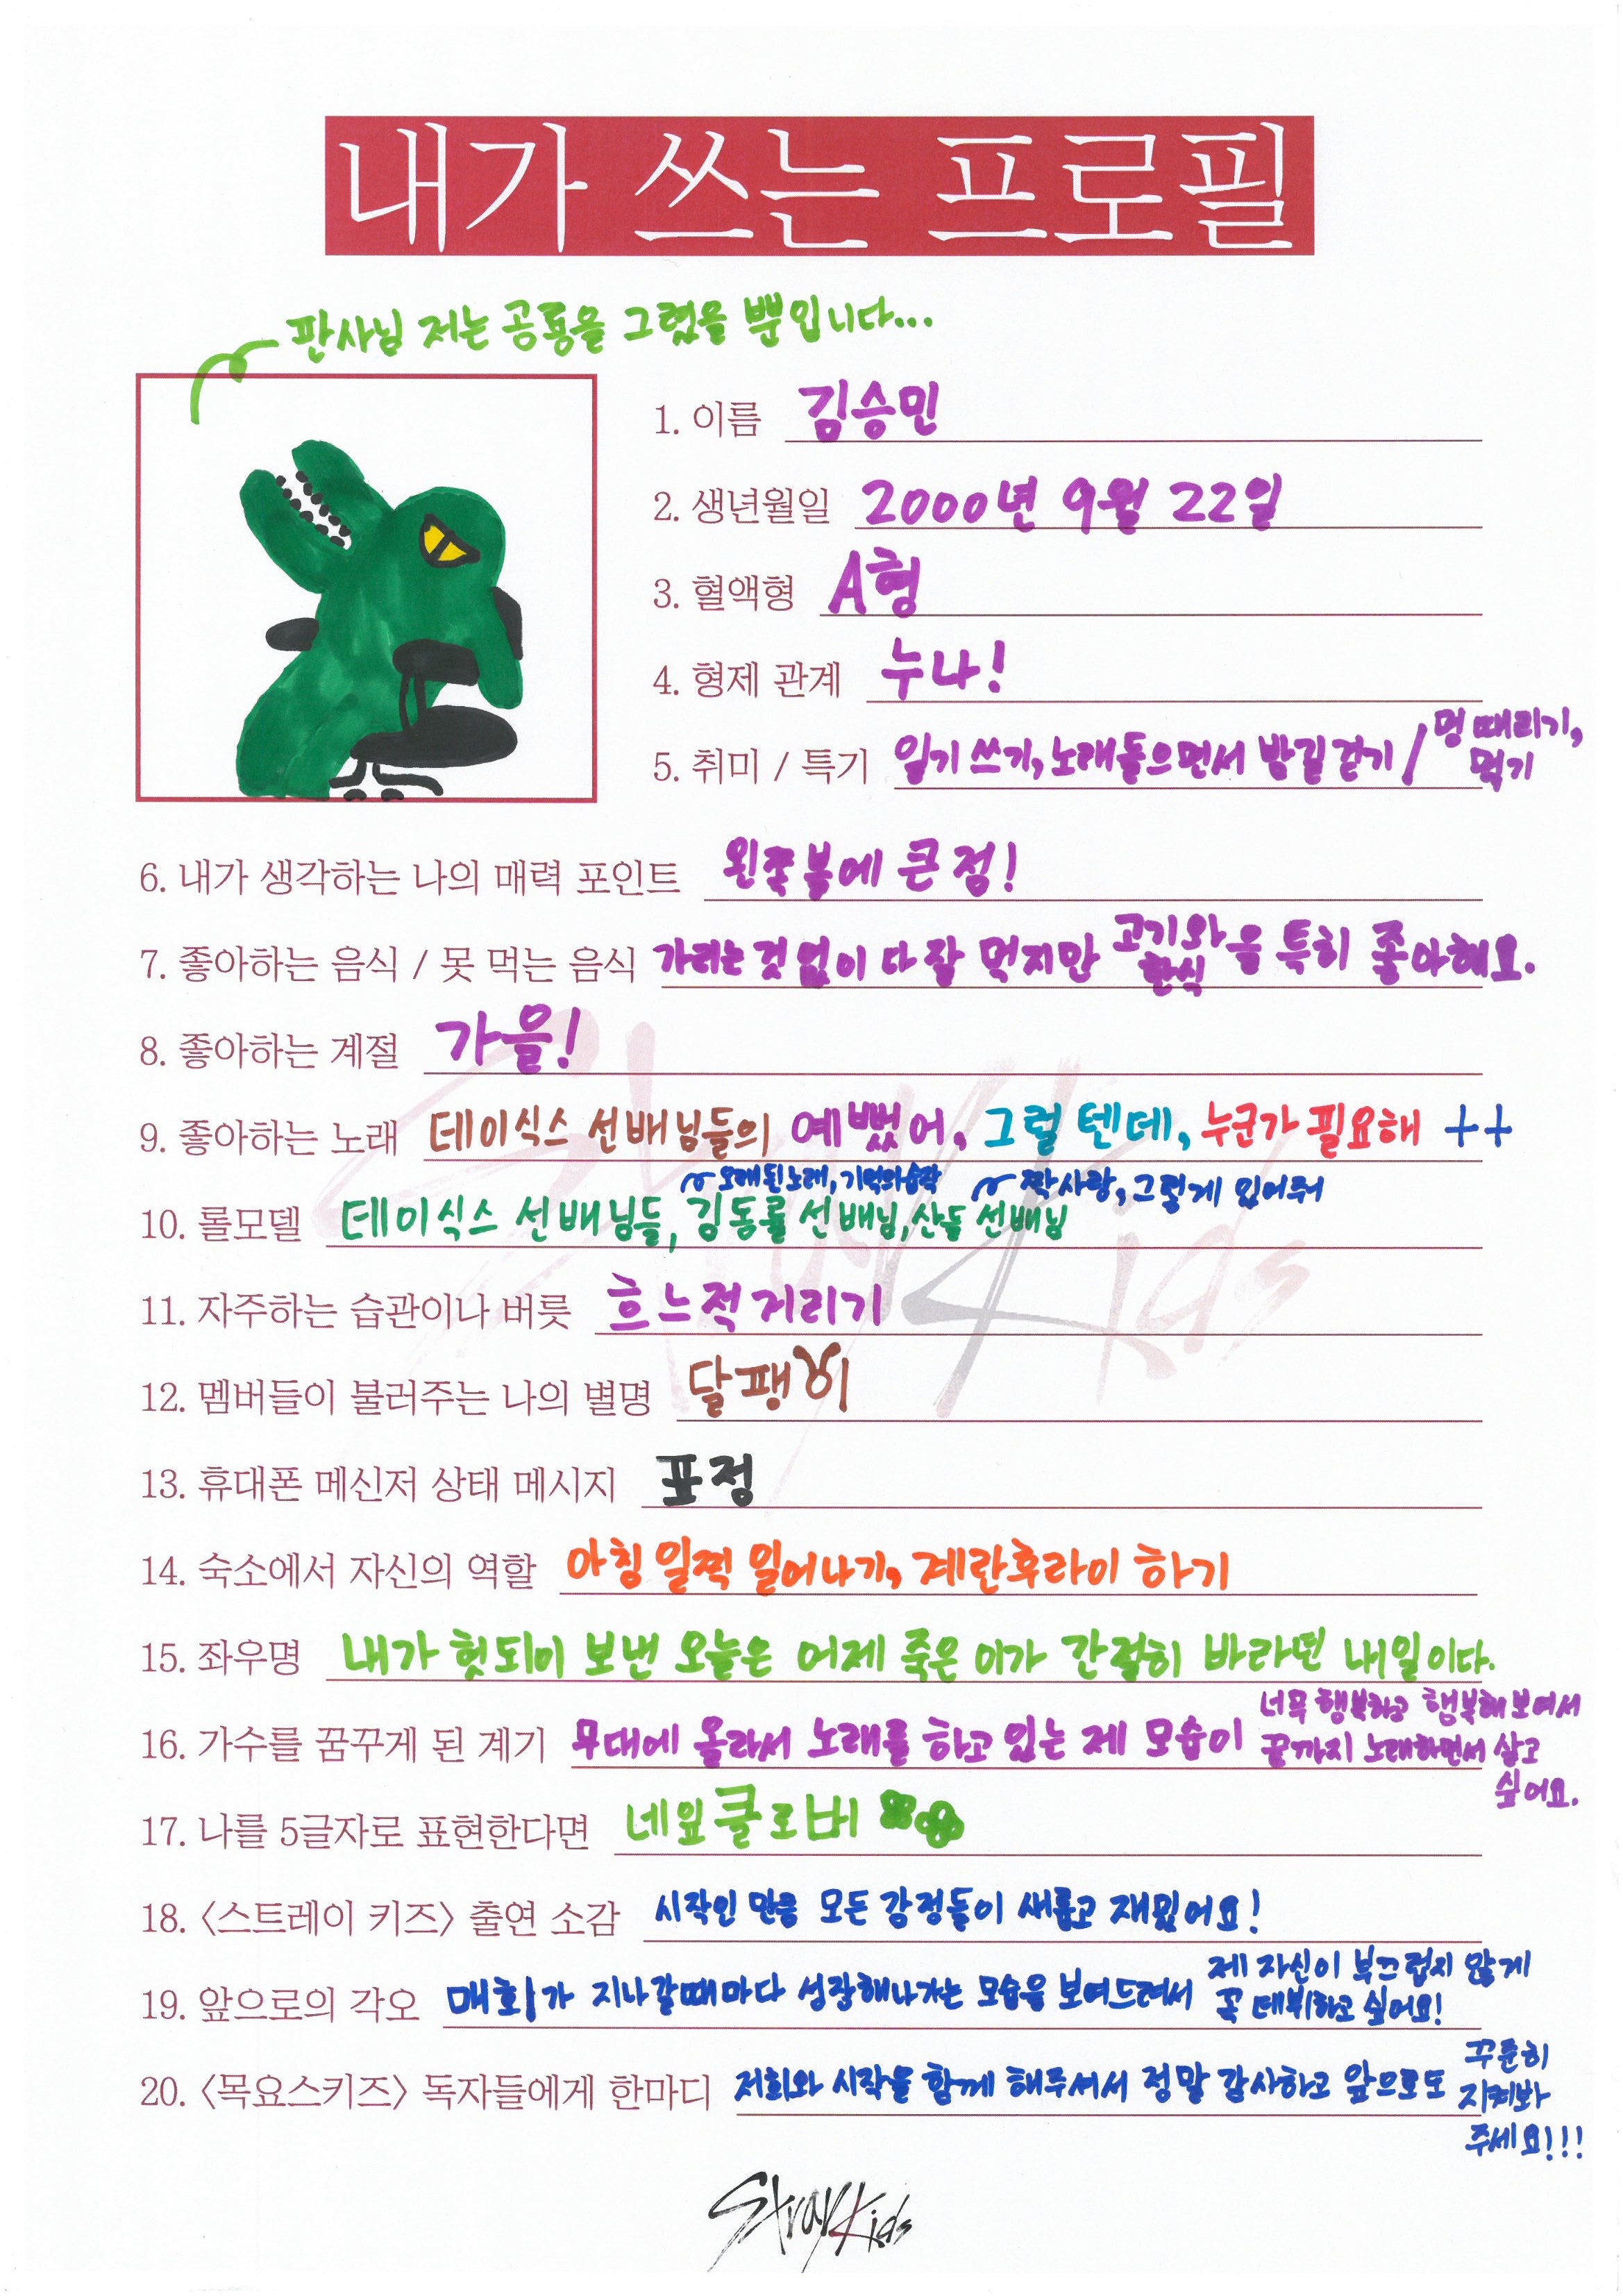 내가 쓰는 프로필
판사님 저는 공룡을 그렸을 뿐입니다...
1. 이름 김승민
2. 생년월일 2000년 9월 22일
3. 혈액형 A형
4. 형제 관계 누나!
5. 취미 / 특기 일기 쓰기, 노래들으면서 밤길 걷기 / 멍 때리기,
먹기
6. 내가 생각하는 나의 매력 포인트 왼쪽 볼에 큰 점!
7. 좋아하는 음식 / 못 먹는 음식 가리는 것 없이 다 잘 먹지만 고기와 한식을 특히 좋아해요.
8. 좋아하는 계절 가을!
9. 좋아하는 노래 데이식스 선배님들의 예뻤어, 그럴 텐데, 누군가 필요해 ++
오래된 노래, 기억의 습작 짝사랑, 그렇게 있어줘
10. 롤모델 데이식스 선배님들, 김동률 선배님, 산들 선배님
11. 자주하는 습관이나 버릇 흐느적거리기
12. 멤버들이 불러주는 나의 별명 달팽이
13. 휴대폰 메신저 상태 메시지 표정
14. 숙소에서 자신의 역할 아침 일찍 일어나기, 계란후라이 하기
15. 좌우명 내가 헛되이 보낸 오늘은 어제 죽은 이가 간절히 바라던 내일이다.
16. 가수를 꿈꾸게 된 계기 무대에 올라서 노래를 하고 있는 제 모습이 너무 행복하고 행복해보여서
끝까지 노래하면서 살고
싶어요.
17. 나를 5글자로 표현한다면 네잎클로버
18. 〈스트레이 키즈〉 출연 소감 시작인 만큼 모든 감정들이 새롭고 재밌어요!
19. 앞으로의 각오 매회가 지나갈때마다 성장해나가는 모습을 보여드려서 제 자신이 부끄럽지 않게
꼭 데뷔하고 싶어요!
20. 〈목요스키즈〉 독자들에게 한마디 저희와 시작을 함께 해주셔서 정말 감사하고 앞으로도 꾸준히
지켜봐
주세요!!!
Stray Kids